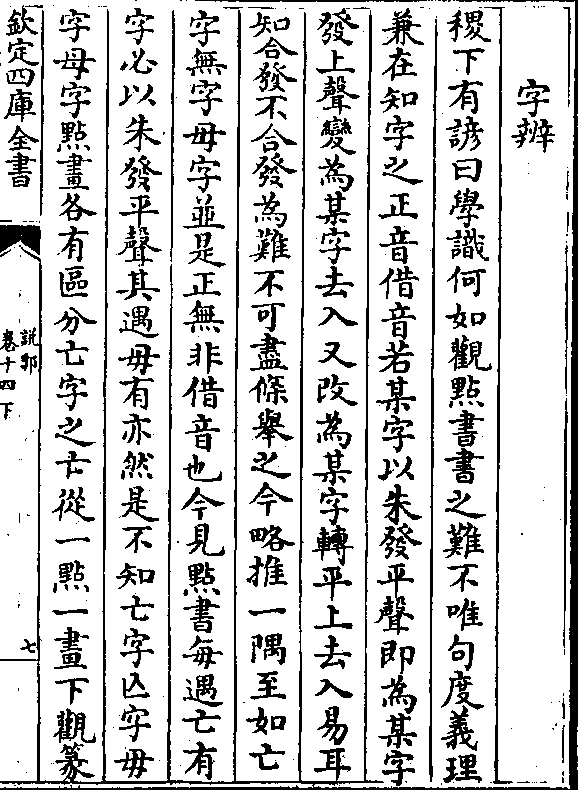 字辨
稷下有諺曰學識何如觀點書書之難不唯句度義理
兼在知字之正音借音若某字以朱發平聲即為某字
發上聲變為某字去入又改為某字轉平上去入易耳
知合發不合發為難不可盡條舉之今略推一隅至如亡
字無字毋字並是正無非借音也今見點書每遇亡有
字必以朱發平聲其遇毋有亦然是不知亡字亾字毋
字母字點畫各有區分亡字之亡從一點一畫下觀篆
欽定四庫全書
說郛
卷十四下
七